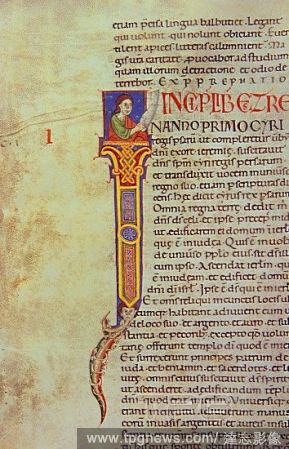 etiam persa lingua balbutiet. Legant
qui volunt. qui nolunt obiciant. Ever
tilent apices. litteras calumnient. Ma
gis vra caritate. pvocabor ad studium
quam illorum detractione et odio de
terrebor. EXP PREFATIO
INCP LIB EZRE
I
IN ANNO PRIMO CYRI
regis psarum ut compleretur verbū
dni ex ore ieremie. suscitavit
dns spm cyri regis persarum
et transduxit vocem in universo
regno suo. etiam p scripturā di
cens. hec dicit cyrus rex psarum
Omnia regna terre dedit m
dns ds celi. et ipse precepit mihi
ut edificarem ei domum in ierlm
que ē in iudea. Quis ē in vobis
de universo pplo eius. sit ds illi
cum ipso. Ascendat ierlm. que
ē in iudea. et edificet domū
dni di isrl. Ipse ē ds qui ē in ierlm
Et oms reliqui in cunctis locis ubi
cumque habitant adiuvent eum viri
de loco suo. et argento et auro et sub
stantia et pecorib; excepto qđ volun
tarie offerunt templo di quod ē in ierlm
Et surrexerunt principes patrum de
iuda. et beniamin. et sacerdotes et le
vite. omnis cuius suscitavit ds spiritum
ut ascenderet ad edificandū templum
dni. quod erat in ierlm. Universique
erant in circuitu adiuverunt manus
eorum in vasis argenteis et aureis
www.tpgnews.com/ 達志影像